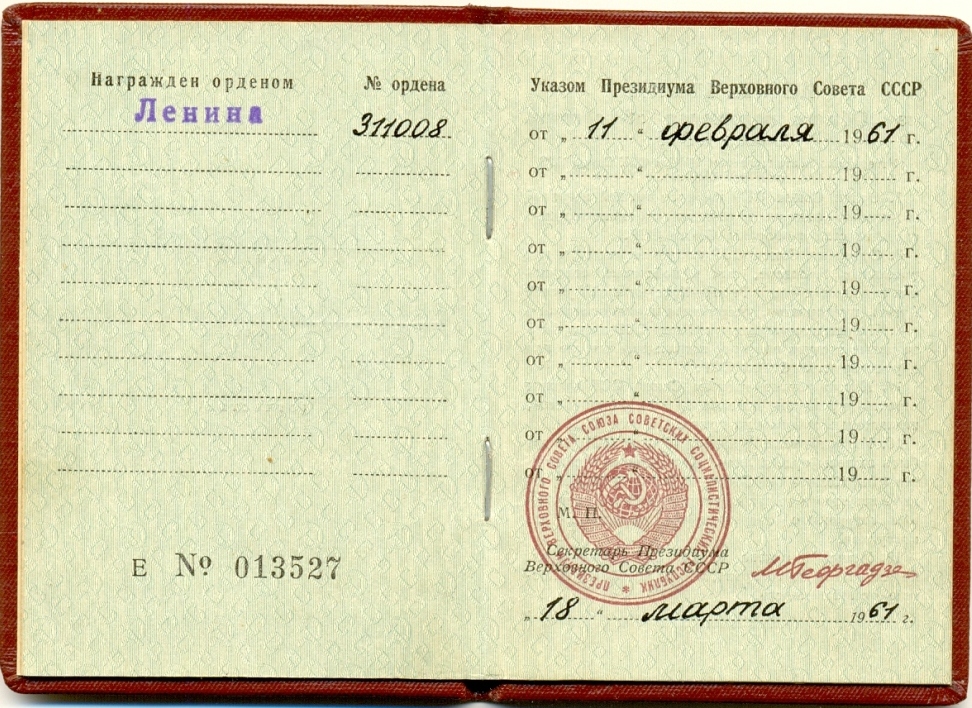 Награжден орденом № ордена
Ленина 311008
Е № 013527
Указом Президиума Верховного Совета СССР
от „ 11 “ февраля 1961 г.
от „ “ 19 г.
от „ “ 19 г.
от „ “ 19 г.
от „ “ 19 г.
от „ “ 19 г.
от „ “ 19 г.
от „ “ 19 г.
от „ “ 19 г.
от „ “ 19 г.
ПРЕЗИДИУМ ВЕРХОВНОГО СОВЕТА СОЮЗА СОВЕТСКИХ СОЦИАЛИСТИЧЕСКИХ РЕСПУБЛИК
М. П.
Секретарь Президиума
Верховного Совета СССР МГеоргадзе
„ 18 “ марта 1961 г.